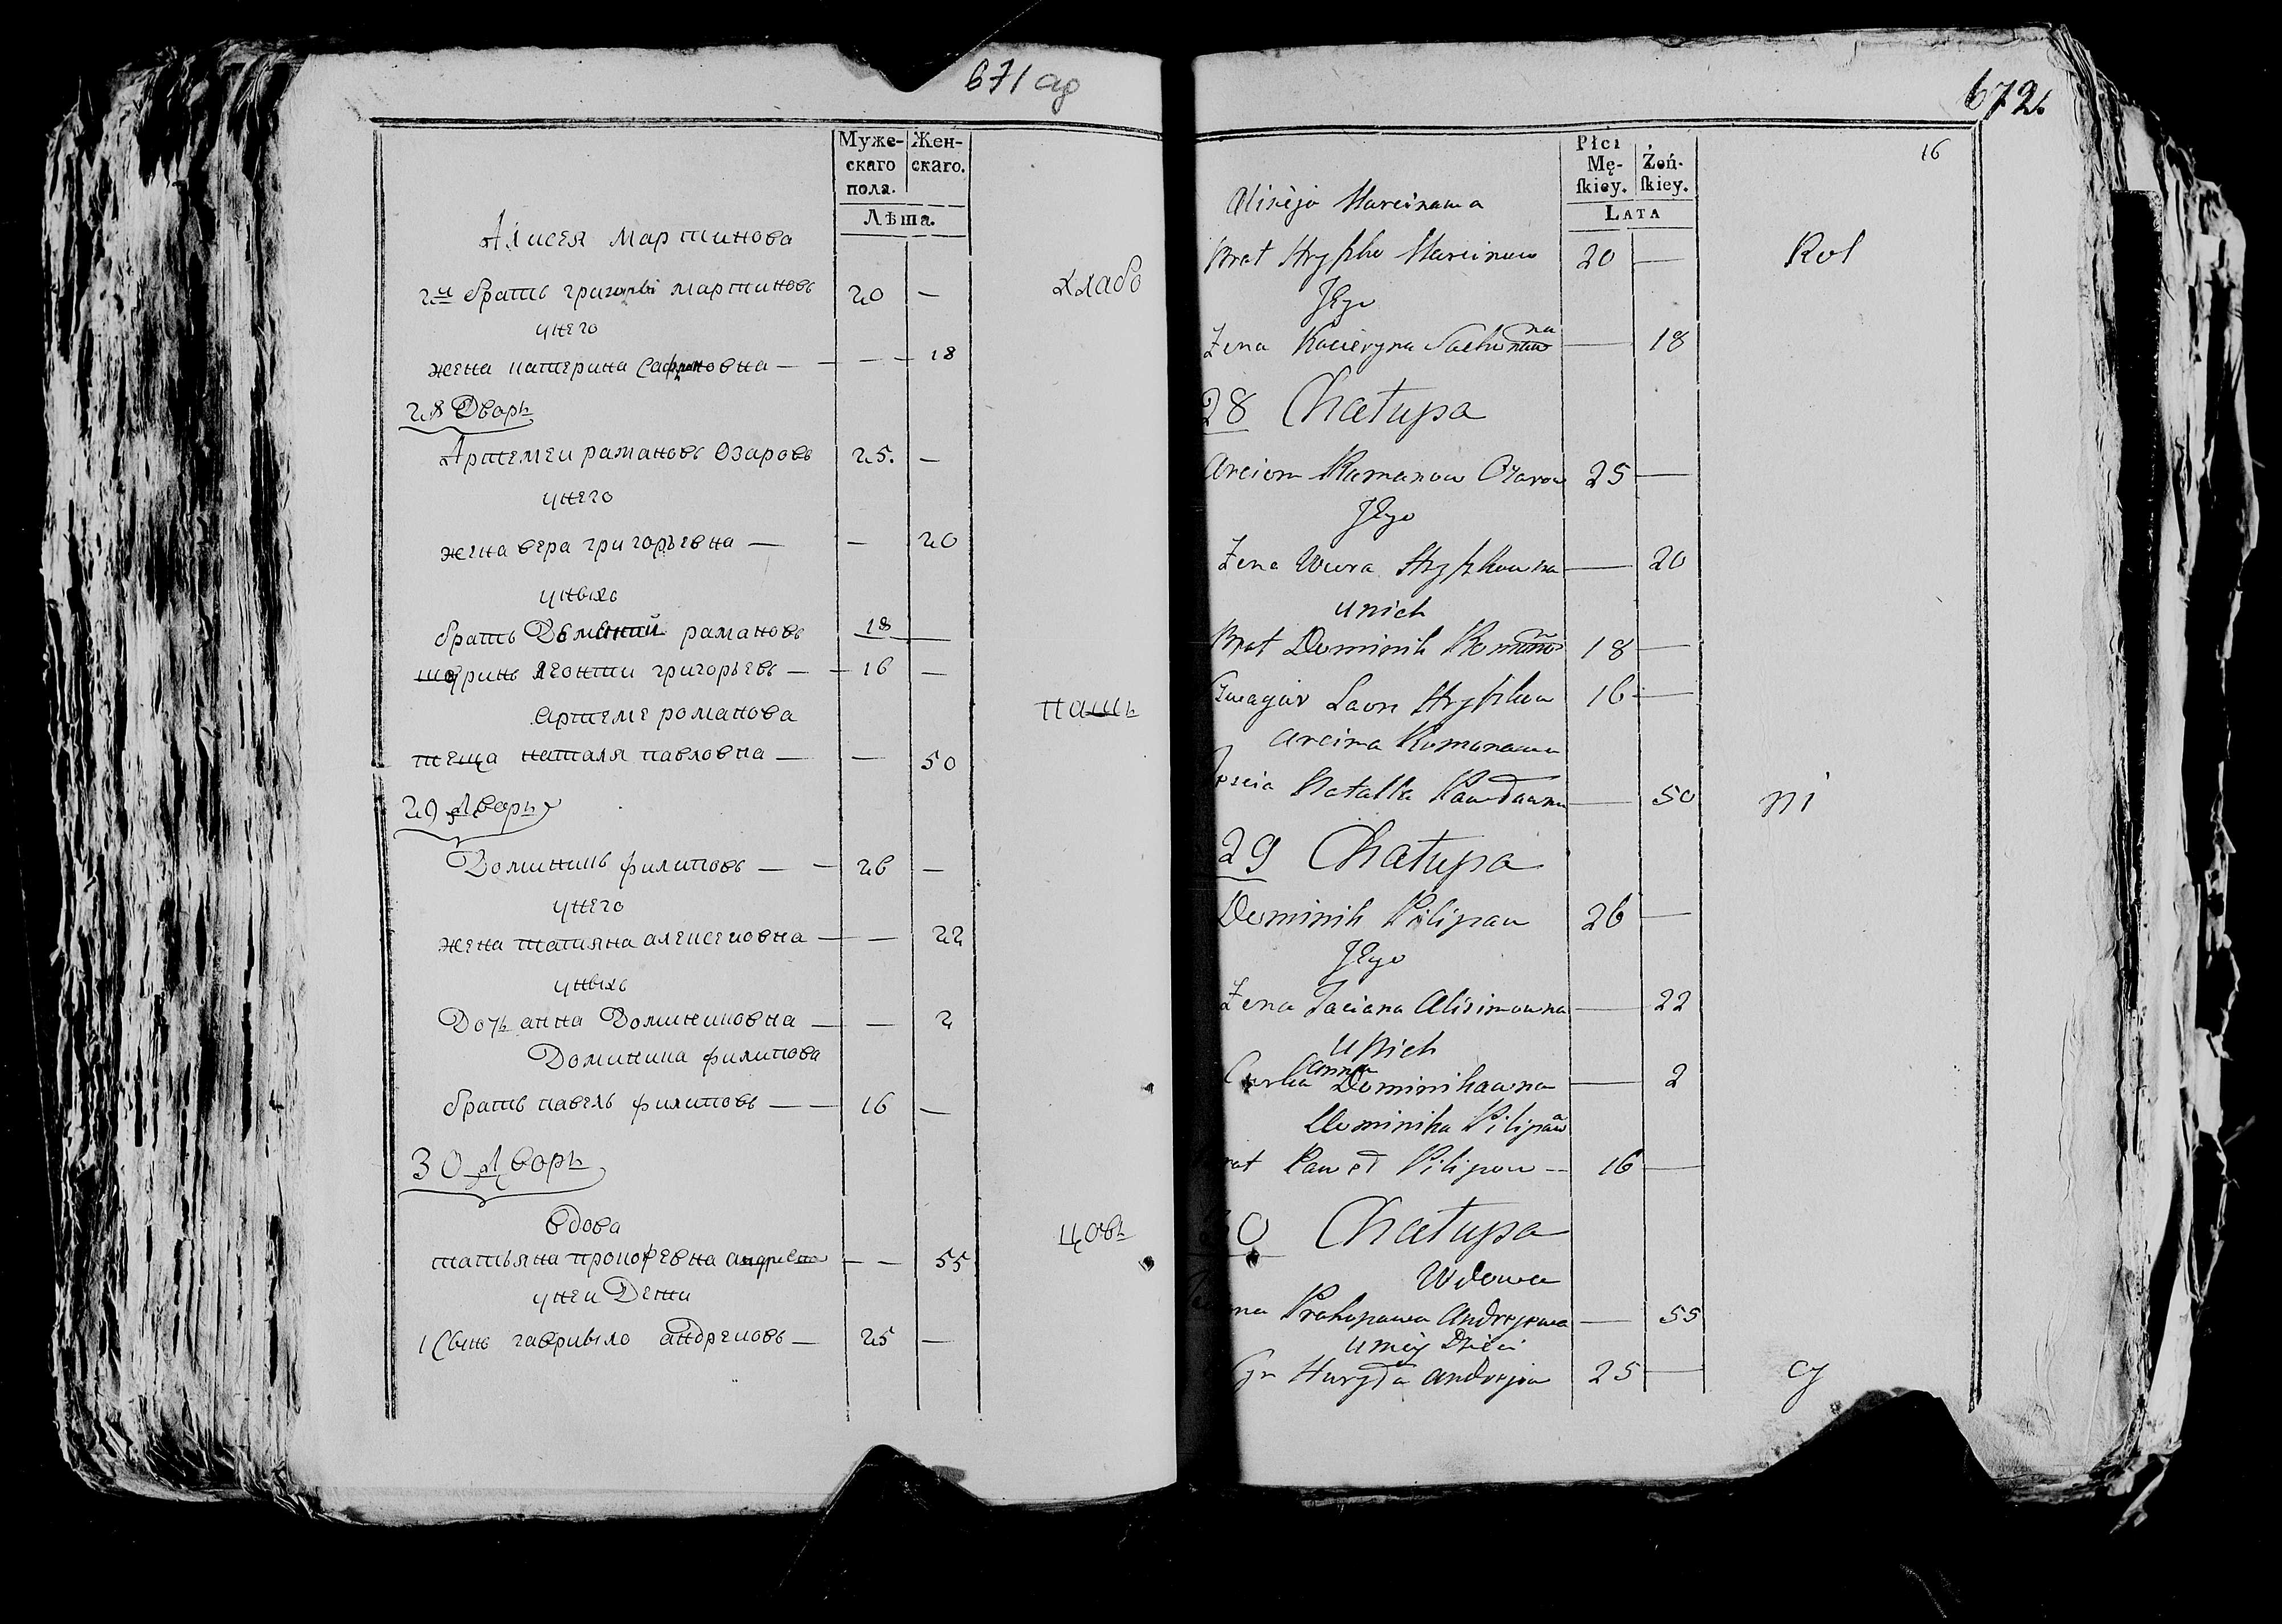 671 об
Муже-
скаго
пола.
Жен-
скаго.
Лѣта.
Алисея Мартинова
2й братъ григорѣі мартиновъ 20 —
хлебо
унего
жена катерина Сафроновна — — 18
28 Дворъ
Артемеи рамановъ Озаровъ 25. —
унего
жена вера григорьевна — — 20
уныхъ
братъ Домыникй рамановъ 18 —
шуринъ леонти григорьевъ — 16 —
Артеме романова
пашъ
теща наталя павловна — — 50
29 Дворъ
Доминикъ филиповъ — 26 —
унего
жена татияна алексеиовна — — 22
уныхъ
Дочь анна Доминиковна — — 2
Доминика филипова
братъ павелъ филиповъ — 16 —
30 Дворъ
вдова
цовъ
татьяна прокофевна андревна — — 55
унеи Дети
1 Сынъ гаврыіло андреиовъ — 25 —
672.
16
Płci
Mę-
ſkiey.
Żeń-
ſkiey.
LATA
Alisieja Marcinawa
Brat Hryszko Marcinow 20 —
Rol
Jego
Żena Kacieryna — 18
28 Chałupa
Arciom Ramanow Ozarow 25 —
Jego
Żena Wiera Hryszkowna — 20
unich
Brat Dominik 18 —
Szwagier Laon Hryszkow 16 —
Arcioma Romanawa
Natalla Pawławna — 50
ni
29 Chałupa
Dominik Pilipaw 26 —
Jego
Żena Taciana Alisimowna — 22
unich
Curka Anna Dominikawna — 2
Dominika Pilipawa
rat Paweł Pilipow — 16 —
30 Chałupa
Wdowa
na Prakopawa Andrejewa — 55
uniey Dzieci
Syn Hawryła Andrejow 25 —
cy